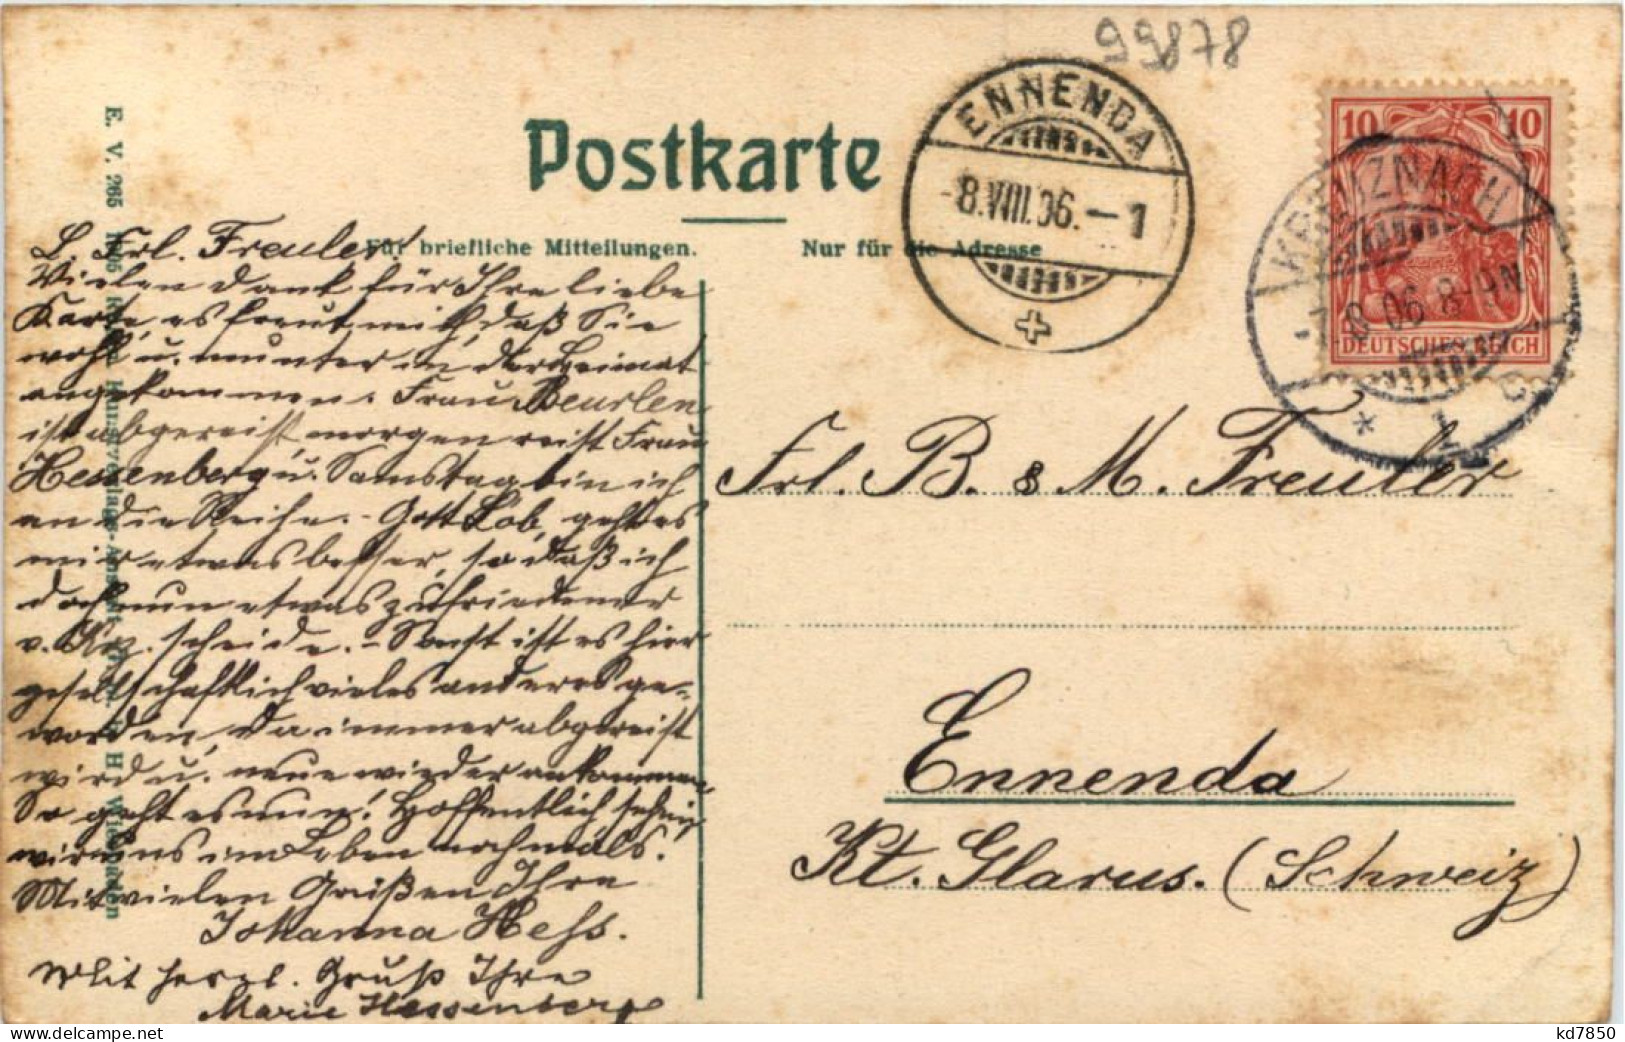 99878
Postkarte
Für briefliche Mitteilungen.
Nur für die Adresse
ENNENDA
8.VIII.06.-1
10 10
DEUTSCHES REICH
KREUZNACH
-7.8.06 8-9N
* 1 c
E. V. 265
L. Frl. Freuler!
Vielen Dank für Ihre liebe
Karte, es freut mich, daß Sie
wohl u. munter in der Heimat
angekommen. Frau Beurlen
ist abgereist, morgen reist Frau
Hessenberg u. Samstag bin ich
an die Reihe. - Gott Lob, geht es
mir etwas besser, so daß ich
doch nun etwas zufriedener
v. Krz. scheide. - Sonst ist es hier
gesellschaftlich vieles anders ge-
worden, da immer abgereist
wird u. neue wieder ankommen.
So geht es nun! Hoffentlich sehen
wir uns im Leben nochmals.
Mit vielen Grüßen Ihre
Johanna Hess.
Mit herzl. Gruß Ihre
Marie Hessenberg
Frl. B. & M. Freuler
Ennenda
Kt. Glarus. (Schweiz)
kd7850